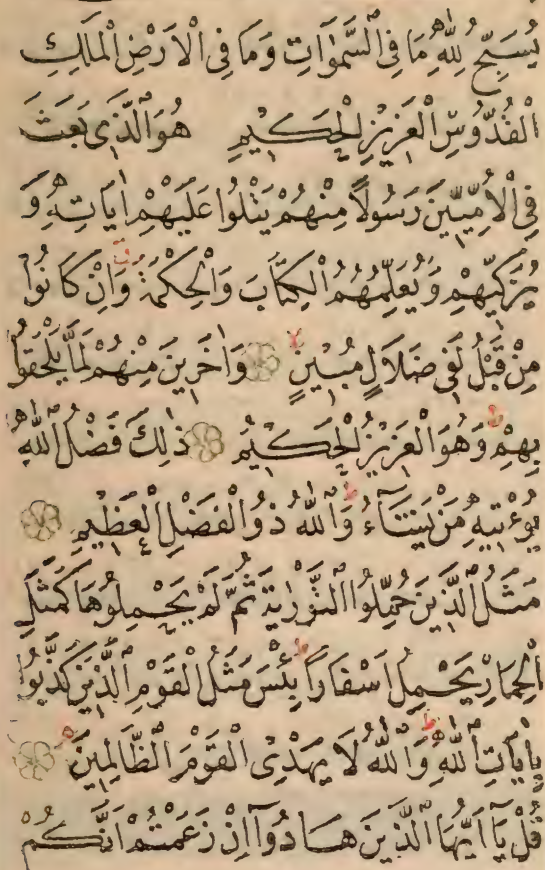 يُسَبِّحُ لِلّٰهِ مَا فِي السَّمٰوَاتِ وَمَا فِي الْاَرْضِ الْمَلِكِ
الْقُدُّوسِ الْعَزِيزِ الْحَكِيمِ هُوَ الَّذِي بَعَثَ
فِي الْاُمِّيِّينَ رَسُولًا مِنْهُمْ يَتْلُوا عَلَيْهِمْ اٰيَاتِهِ وَ
يُزَكِّيهِمْ وَيُعَلِّمُهُمُ الْكِتَابَ وَالْحِكْمَةَ وَاِنْ كَانُوا
مِنْ قَبْلُ لَفِي ضَلَالٍ مُبِينٍ وَاٰخَرِينَ مِنْهُمْ لَمَّا يَلْحَقُوا
بِهِمْ وَهُوَ الْعَزِيزُ الْحَكِيمُ ذٰلِكَ فَضْلُ اللّٰهِ
يُؤْتِيهِ مَنْ يَشَآءُ وَاللّٰهُ ذُو الْفَضْلِ الْعَظِيمِ
مَثَلُ الَّذِينَ حُمِّلُوا التَّوْرٰيةَ ثُمَّ لَمْ يَحْمِلُوهَا كَمَثَلِ
الْحِمَارِ يَحْمِلُ اَسْفَارًا بِئْسَ مَثَلُ الْقَوْمِ الَّذِينَ كَذَّبُوا
بِاٰيَاتِ اللّٰهِ وَاللّٰهُ لَا يَهْدِي الْقَوْمَ الظَّالِمِينَ
قُلْ يَآ اَيُّهَا الَّذِينَ هَادُوآ اِنْ زَعَمْتُمْ اَنَّكُمْ